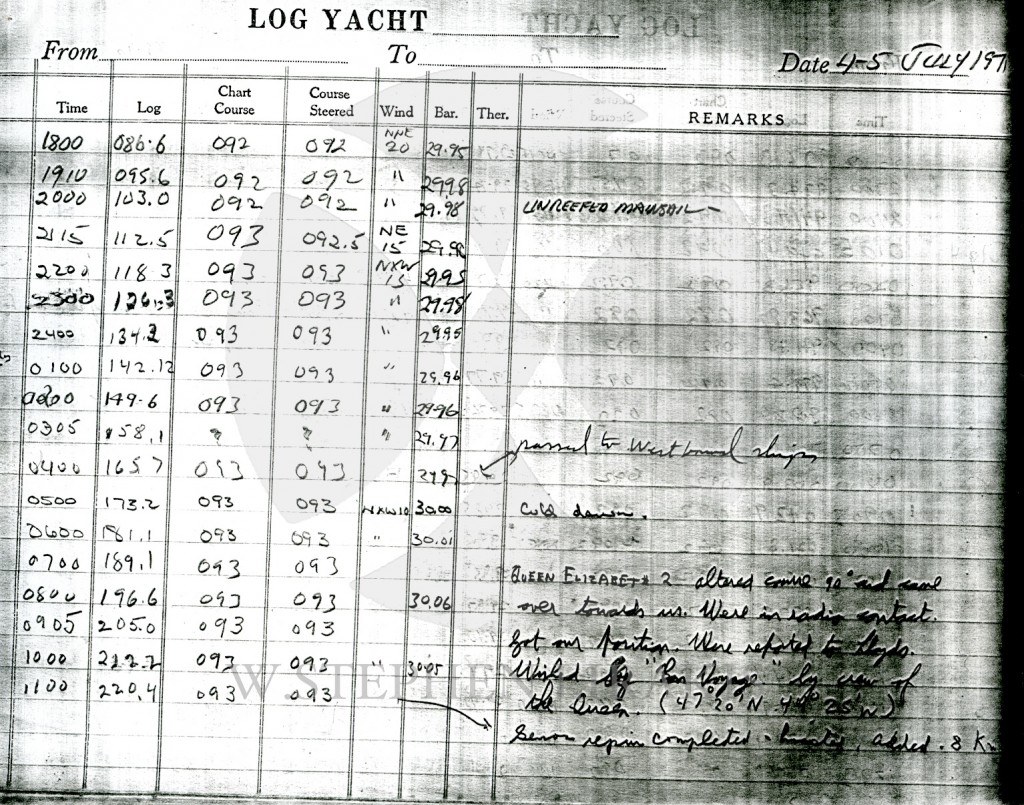 LOG YACHT
From To Date 4-5 JULY 197
Time Log Chart Course Course Steered Wind Bar. Ther. REMARKS
1800 086.6 092 092 NNE 20 29.95
1910 095.6 092 092 " 29.98
2000 103.0 092 092 " 29.98 UNREEFED MAINSAIL -
2115 112.5 093 092.5 NE 15 29.98
2200 118.3 093 093 NXW 15 29.95
2300 126.3 093 093 " 29.98
2400 134.2 093 093 " 29.95
0100 142.12 093 093 " 29.96
0200 149.6 093 093 " 29.96
0305 158.1 ? ? " 29.97
passed to Westbound ships
0400 165.7 093 093
0500 173.2 093 093 NXW10 30.00 Cold dawn.
0600 181.1 093 093 " 30.01
0700 189.1 093 093
QUEEN ELIZABETH 2 altered course 90° and came
0800 196.6 093 093 30.06 over towards us. Were in radio contact.
0905 205.0 093 093
Got our position. Were reported to Lloyds.
1000 212.2 093 093 " 30.05 Wished by "Bon Voyage" by crew of
1100 220.4 093 093 the Queen. (47°20'N 44° 25 W)
Genoa repair completed - hoisted, added .8 Kn
W. STEPHEN